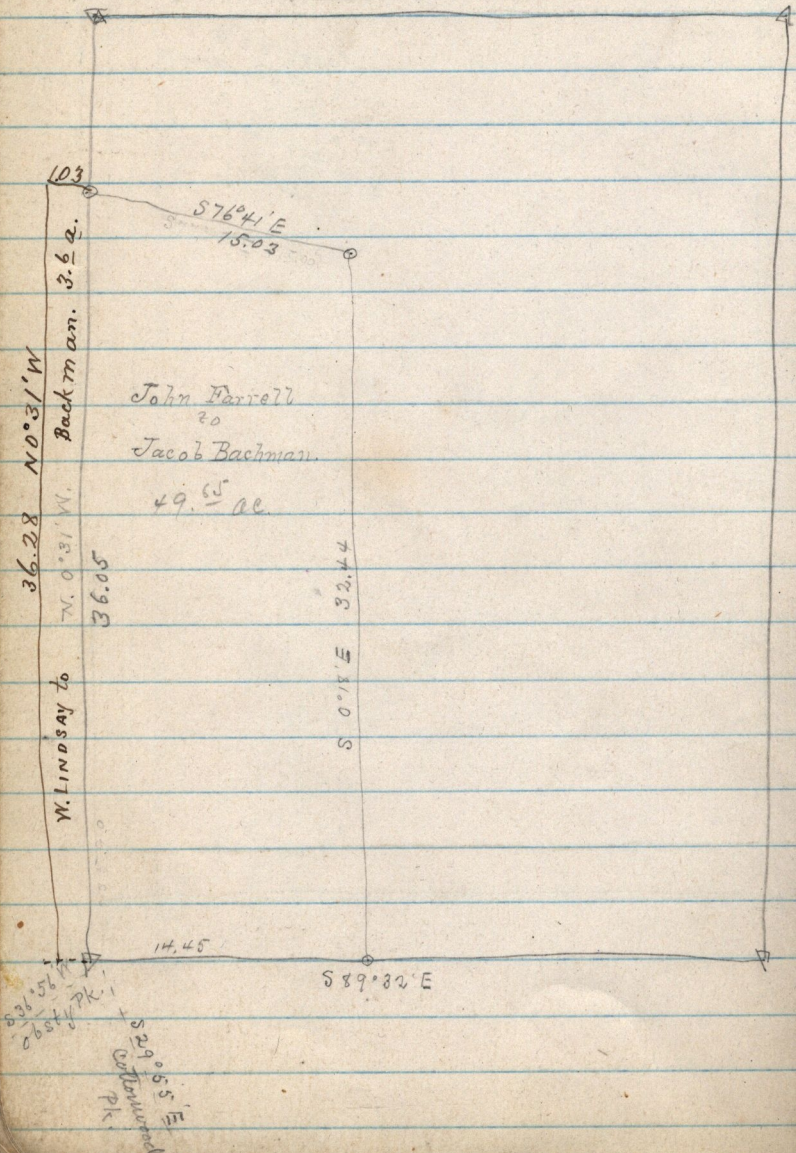 1.03
S 76° 41' E
15.03
36.28 N 0° 31' W
W. LINDSAY to Backman. 3.6 a.
N. 0° 31' W.
36.05
John Farrell
to
Jacob Bachman.
49.65 ac.
S 0° 18' E 32.44
14.45
S 89° 32' E
S 36° 56' W
Pk.
S 29° 55' E
Cottonwood
Pk.